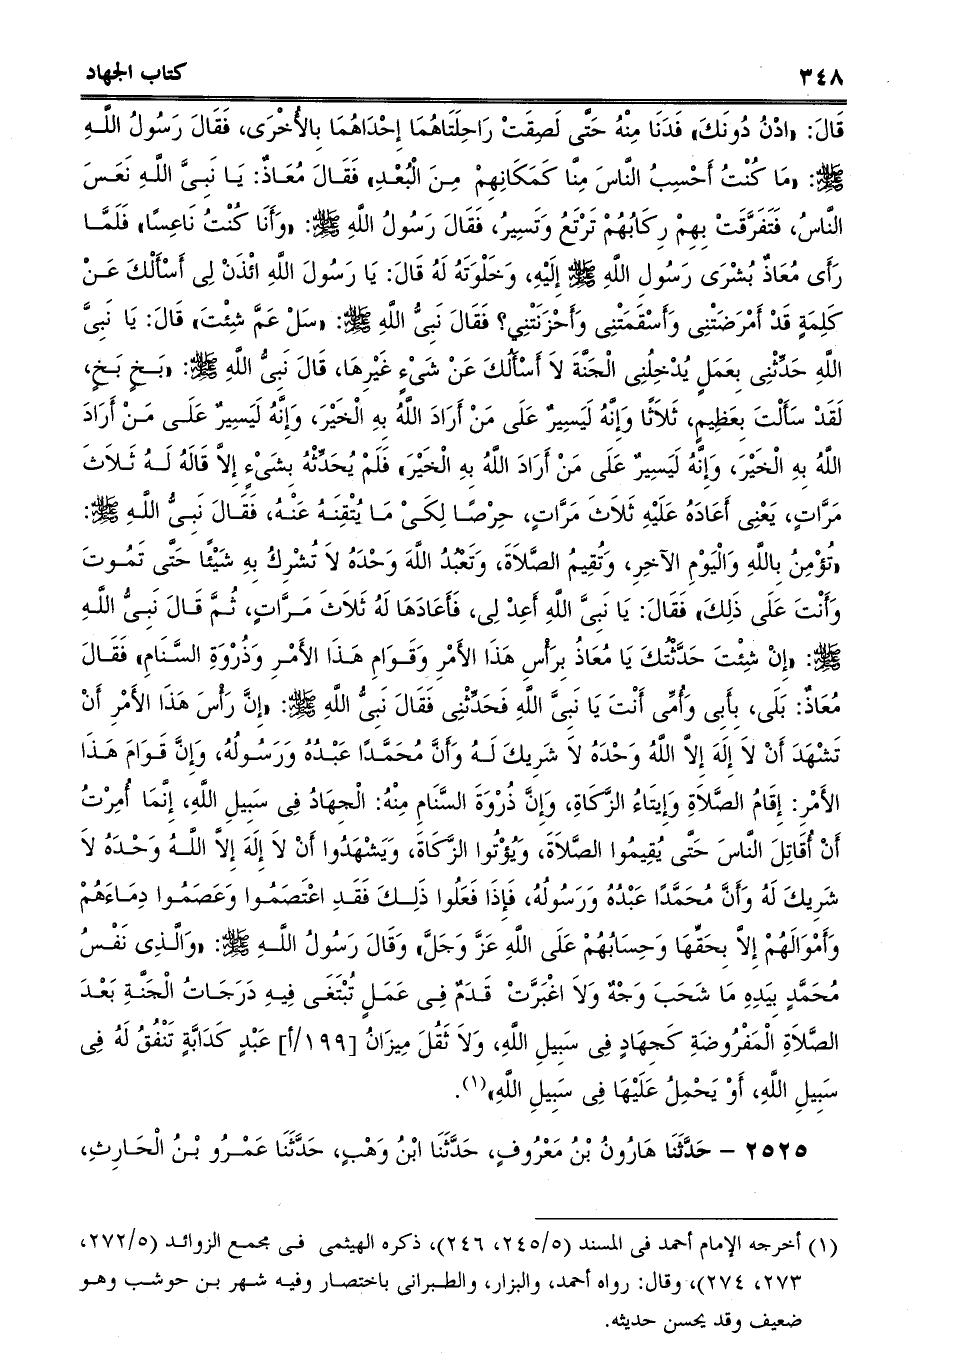 ٣٤٨ كتاب الجهاد
قَالَ: «ادْنُ دُونَكَ» فَدَنَا مِنْهُ حَتَّى لَصِقَتْ رَاحِلَتَاهُمَا إِحْدَاهُمَا بِالأُخْرَى، فَقَالَ رَسُولُ اللَّهِ
ﷺ: «مَا كُنْتُ أَحْسِبُ النَّاسَ مِنَّا كَمَكَانِهِمْ مِنَ الْبُعْدِ» فَقَالَ مُعَاذٌ: يَا نَبِىَّ اللَّهِ نَعَسَ
النَّاسُ، فَتَفَرَّقَتْ بِهِمْ رِكَابُهُمْ تَرْتَعُ وَتَسِيرُ، فَقَالَ رَسُولُ اللَّهِ ﷺ: «وَأَنَا كُنْتُ نَاعِسًا» فَلَمَّا
رَأَى مُعَاذٌ بُشْرَى رَسُولِ اللَّهِ ﷺ إِلَيْهِ، وَخَلْوَتَهُ لَهُ قَالَ: يَا رَسُولَ اللَّهِ ائْذَنْ لِى أَسْأَلْكَ عَنْ
كَلِمَةٍ قَدْ أَمْرَضَتْنِى وَأَسْقَمَتْنِى وَأَحْزَنَتْنِي؟ فَقَالَ نَبِىُّ اللَّهِ ﷺ: «سَلْ عَمَّ شِئْتَ» قَالَ: يَا نَبِىَّ
اللَّهِ حَدِّثْنِى بِعَمَلٍ يُدْخِلُنِى الْجَنَّةَ لاَ أَسْأَلُكَ عَنْ شَىْءٍ غَيْرِهَا، قَالَ نَبِىُّ اللَّهِ ﷺ: «بَخٍ بَخٍ،
لَقَدْ سَأَلْتَ بِعَظِيمٍ، ثَلاَثًا وَإِنَّهُ لَيَسِيرٌ عَلَى مَنْ أَرَادَ اللَّهُ بِهِ الْخَيْرَ، وَإِنَّهُ لَيَسِيرٌ عَلَى مَنْ أَرَادَ
اللَّهُ بِهِ الْخَيْرَ، وَإِنَّهُ لَيَسِيرٌ عَلَى مَنْ أَرَادَ اللَّهُ بِهِ الْخَيْرَ» فَلَمْ يُحَدِّثْهُ بِشَىْءٍ إِلاَّ قَالَهُ لَهُ ثَلاَثَ
مَرَّاتٍ، يَعْنِى أَعَادَهُ عَلَيْهِ ثَلاَثَ مَرَّاتٍ، حِرْصًا لِكَىْ مَا يُتْقِنَهُ عَنْهُ، فَقَالَ نَبِىُّ اللَّهِ ﷺ:
«تُؤْمِنُ بِاللَّهِ وَالْيَوْمِ الآخِرِ، وَتُقِيمُ الصَّلاَةَ، وَتَعْبُدُ اللَّهَ وَحْدَهُ لاَ تُشْرِكُ بِهِ شَيْئًا حَتَّى تَمُوتَ
وَأَنْتَ عَلَى ذَلِكَ» فَقَالَ: يَا نَبِىَّ اللَّهِ أَعِدْ لِى، فَأَعَادَهَا لَهُ ثَلاَثَ مَرَّاتٍ، ثُمَّ قَالَ نَبِىُّ اللَّهِ
ﷺ: «إِنْ شِئْتَ حَدَّثْتُكَ يَا مُعَاذُ بِرَأْسِ هَذَا الأَمْرِ وَقَوَامِ هَذَا الأَمْرِ وَذُرْوَةِ السَّنَامِ» فَقَالَ
مُعَاذٌ: بَلَى، بِأَبِى وَأُمِّى أَنْتَ يَا نَبِىَّ اللَّهِ فَحَدِّثْنِى فَقَالَ نَبِىُّ اللَّهِ ﷺ: «إِنَّ رَأْسَ هَذَا الأَمْرِ أَنْ
تَشْهَدَ أَنْ لاَ إِلَهَ إِلاَّ اللَّهُ وَحْدَهُ لاَ شَرِيكَ لَهُ وَأَنَّ مُحَمَّدًا عَبْدُهُ وَرَسُولُهُ، وَإِنَّ قَوَامَ هَذَا
الأَمْرِ: إِقَامُ الصَّلاَةِ وَإِيتَاءُ الزَّكَاةِ، وَإِنَّ ذُرْوَةَ السَّنَامِ مِنْهُ: الْجِهَادُ فِى سَبِيلِ اللَّهِ، إِنَّمَا أُمِرْتُ
أَنْ أُقَاتِلَ النَّاسَ حَتَّى يُقِيمُوا الصَّلاَةَ، وَيُؤْتُوا الزَّكَاةَ، وَيَشْهَدُوا أَنْ لاَ إِلَهَ إِلاَّ اللَّهُ وَحْدَهُ لاَ
شَرِيكَ لَهُ وَأَنَّ مُحَمَّدًا عَبْدُهُ وَرَسُولُهُ، فَإِذَا فَعَلُوا ذَلِكَ فَقَدِ اعْتَصَمُوا وَعَصَمُوا دِمَاءَهُمْ
وَأَمْوَالَهُمْ إِلاَّ بِحَقِّهَا وَحِسَابُهُمْ عَلَى اللَّهِ عَزَّ وَجَلَّ» وَقَالَ رَسُولُ اللَّهِ ﷺ: «وَالَّذِى نَفْسُ
مُحَمَّدٍ بِيَدِهِ مَا شَحَبَ وَجْهٌ وَلاَ اغْبَرَّتْ قَدَمٌ فِى عَمَلٍ تُبْتَغَى فِيهِ دَرَجَاتُ الْجَنَّةِ بَعْدَ
الصَّلاَةِ الْمَفْرُوضَةِ كَجِهَادٍ فِى سَبِيلِ اللَّهِ، وَلاَ ثَقُلَ مِيزَانُ [١٩٩/أ] عَبْدٍ كَدَابَّةٍ تَنْفُقُ لَهُ فِى
سَبِيلِ اللَّهِ، أَوْ يَحْمِلُ عَلَيْهَا فِى سَبِيلِ اللَّهِ»(١).
٢٥٢٥ – حَدَّثَنَا هَارُونُ بْنُ مَعْرُوفٍ، حَدَّثَنَا ابْنُ وَهْبٍ، حَدَّثَنَا عَمْرُو بْنُ الْحَارِثِ،
(١) أخرجه الإمام أحمد فى المسند (٢٤٥/٥، ٢٤٦)، ذكره الهيثمى فى مجمع الزوائد (٢٧٢/٥،
٢٧٣، ٢٧٤)، وقال: رواه أحمد، والبزار، والطبرانى باختصار وفيه شهر بن حوشب وهو
ضعيف وقد يحسن حديثه.